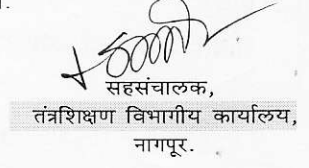 सहसंचालक,
तंत्रशिक्षण विभागीय कार्यालय,
नागपूर.